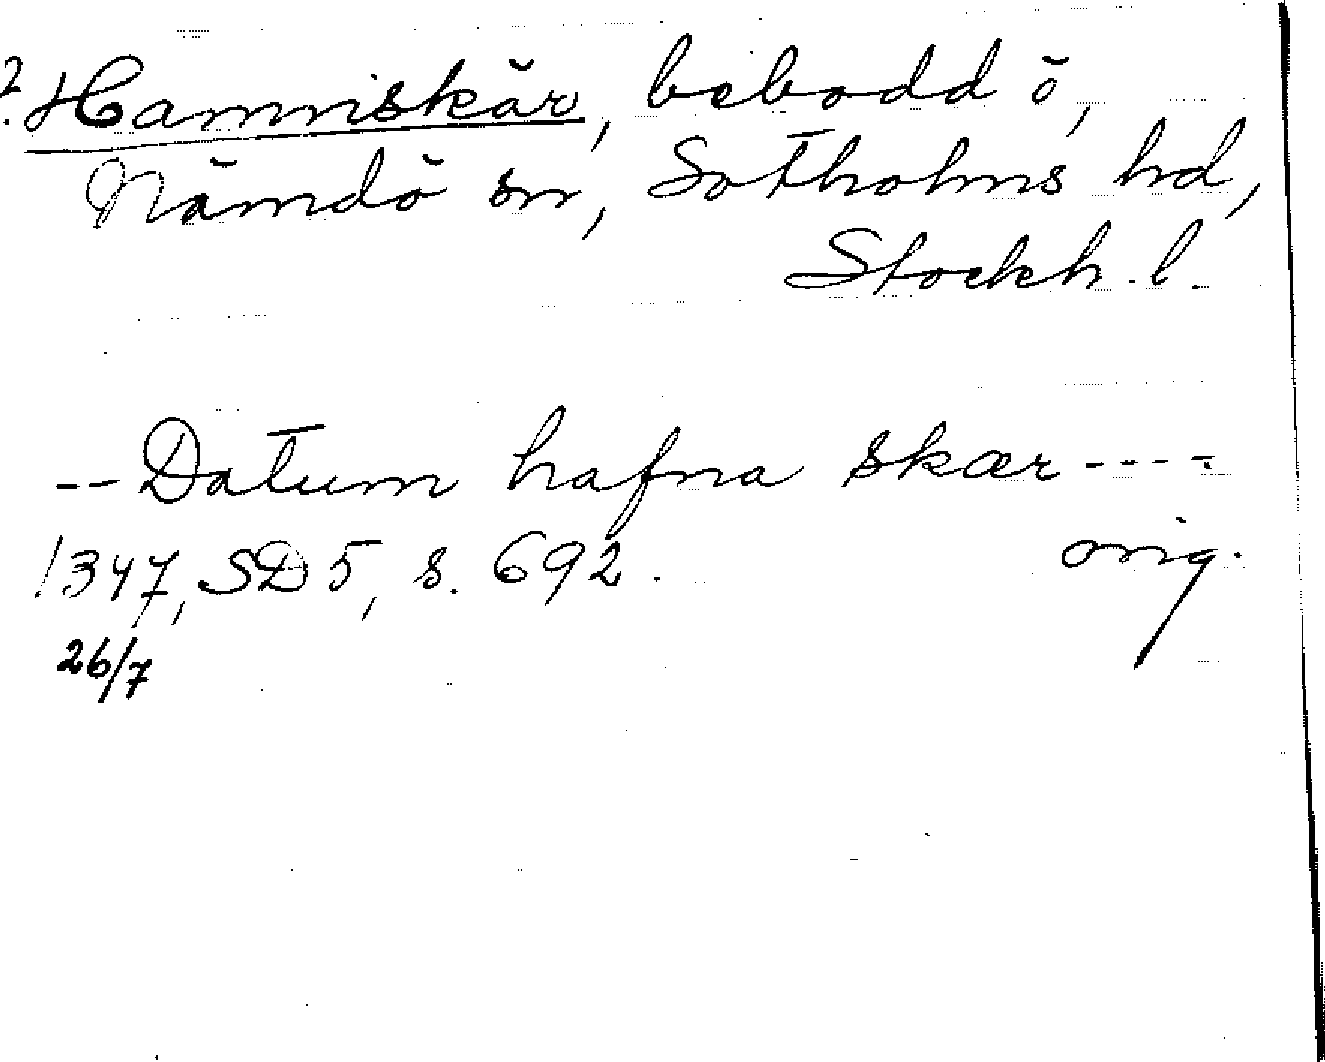 ? Hamnskär, bebodd ö,
Nämdö sn, Sotholms hd,
Stockh. l.
-- Datum hafna skær ----
1347, SD 5, s. 692. orig.
26/7